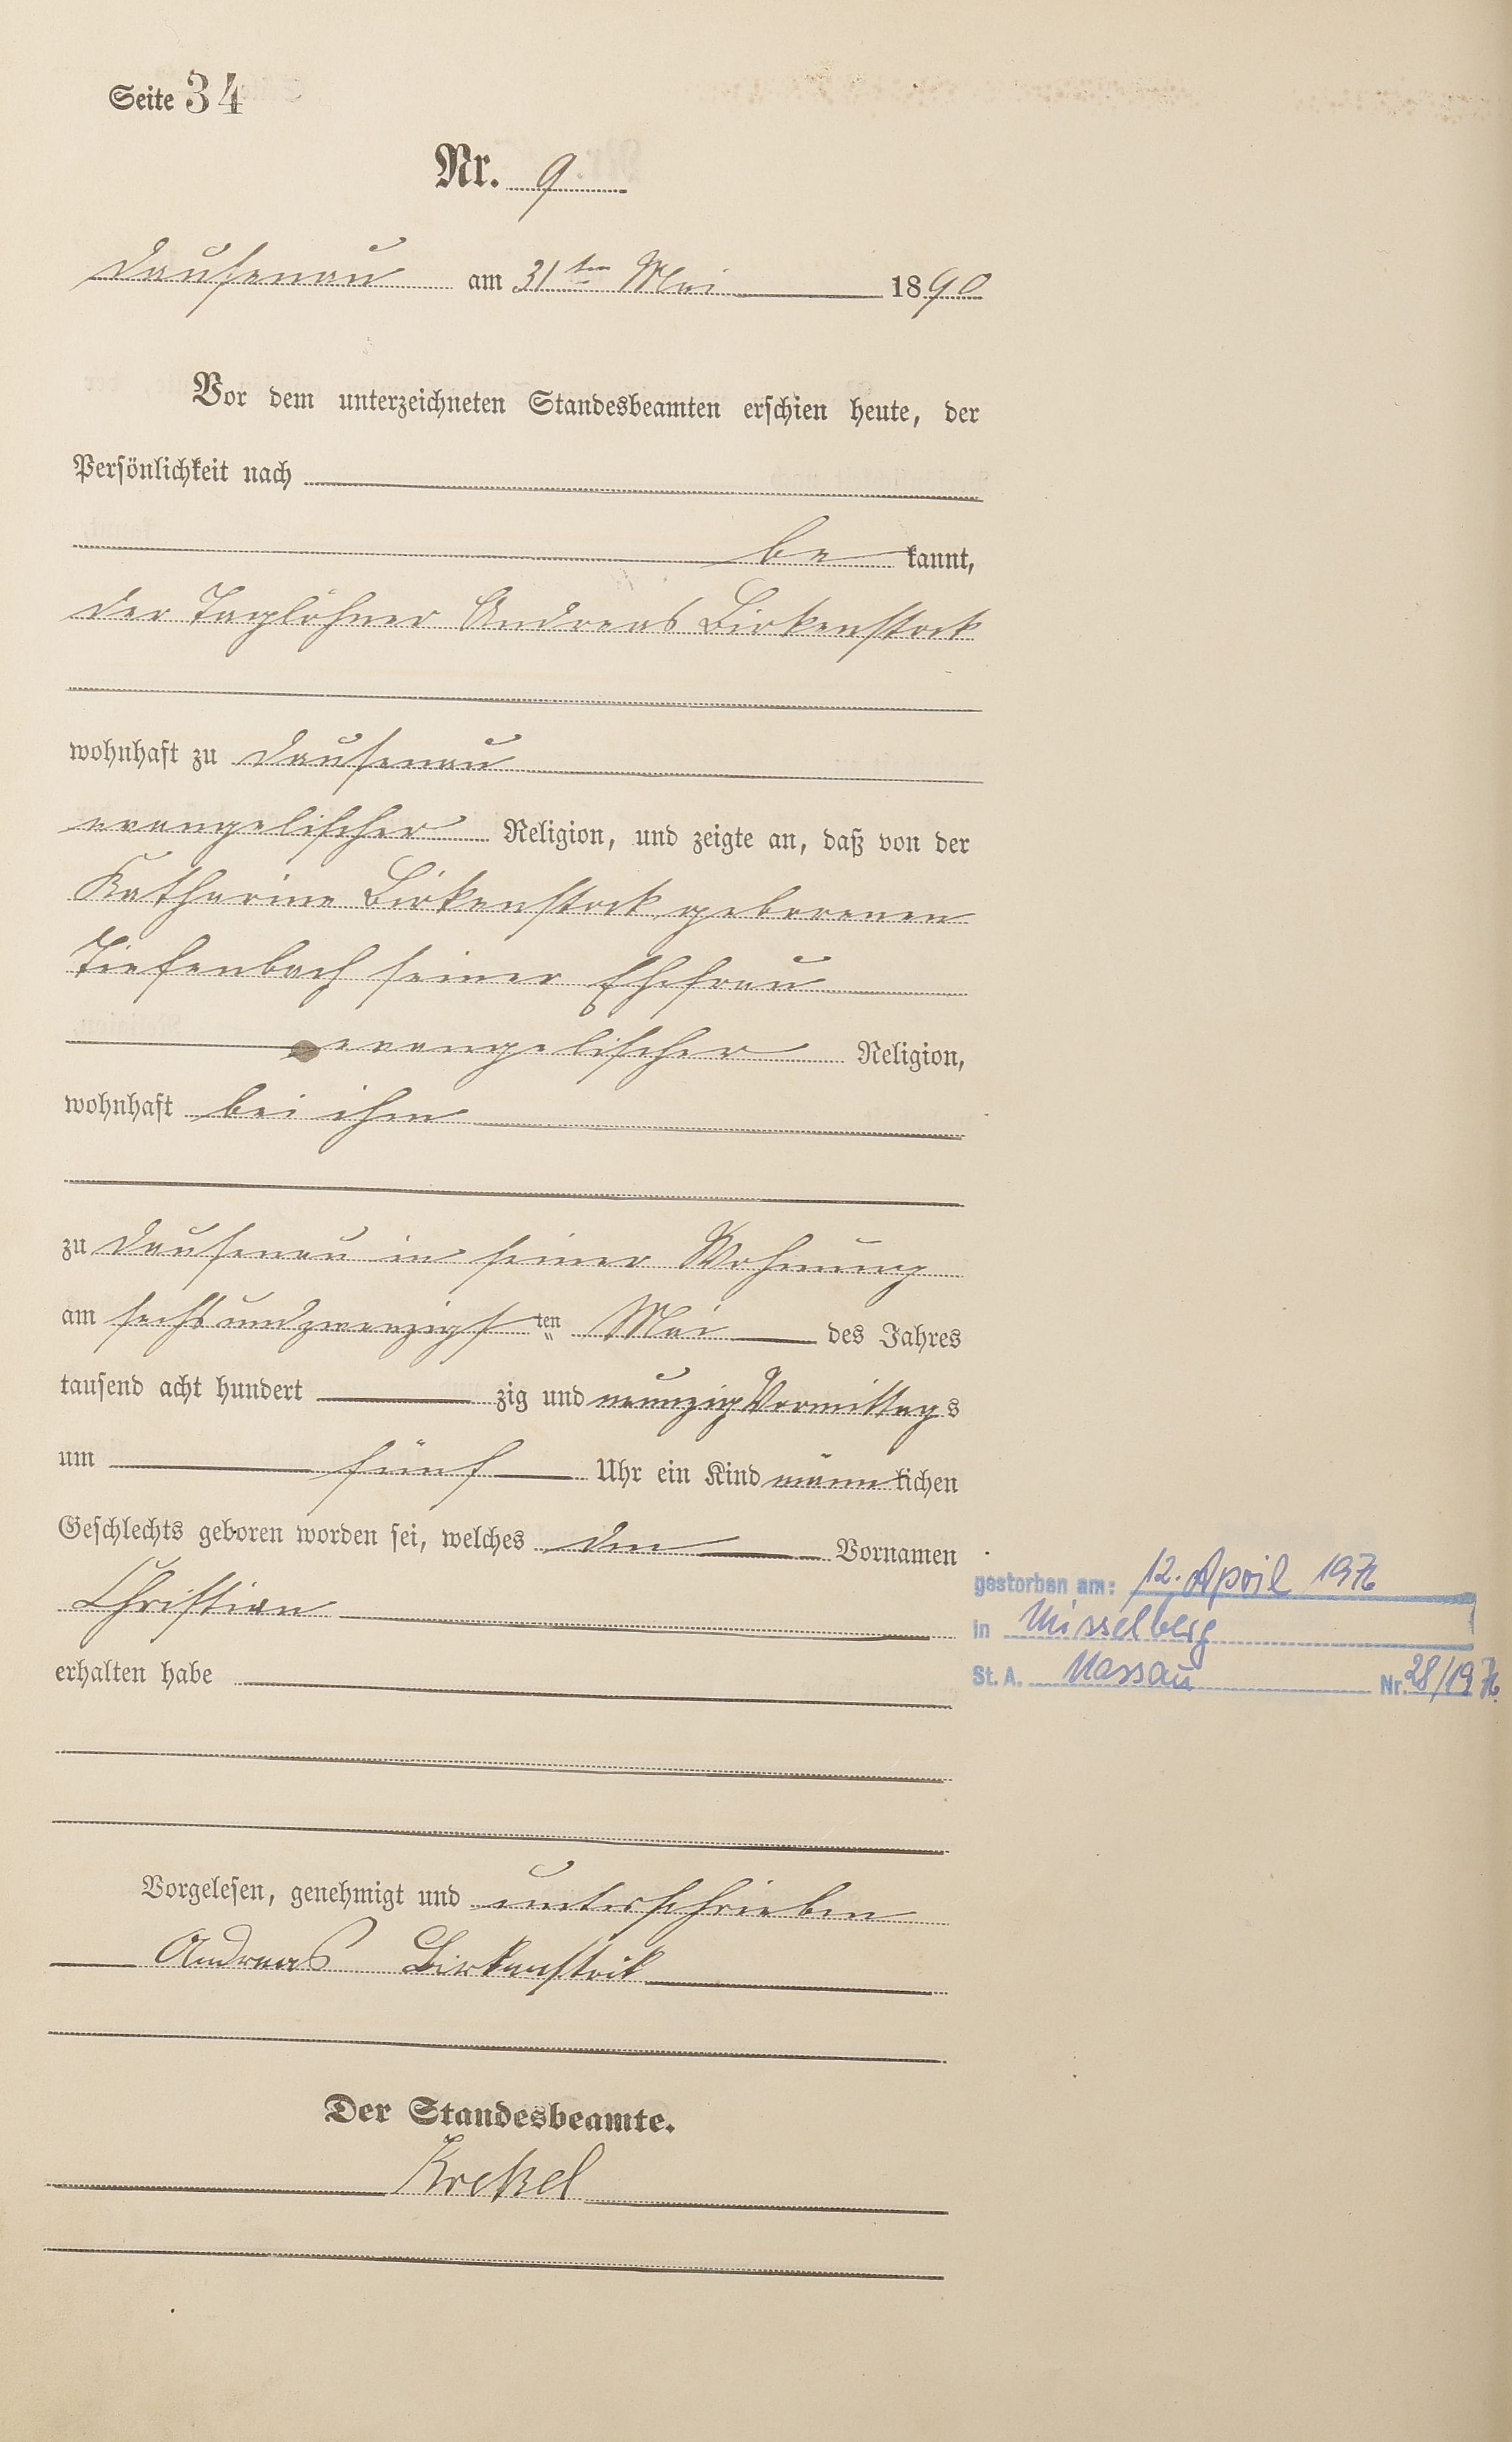 Seite 34
Nr. 9
Dausenau am 31ten Mai 1890
Vor dem unterzeichneten Standesbeamten erschien heute, der
Persönlichkeit nach
be kannt,
der Taglöhner Andreas Birkenstock
wohnhaft zu Dausenau
evangelischer Religion, und zeigte an, daß von der
Katharine Birkenstock geborenen
Tiefenbach seiner Ehefrau
evangelischer Religion,
wohnhaft bei ihm
zu Dausenau in seiner Wohnung
am sechsundzwanzigsten Mai des Jahres
tausend acht hundert zig und neunzig Vormittags
um fünf Uhr ein Kind männlichen
Geschlechts geboren worden sei, welches den Vornamen
Christian
erhalten habe
gestorben am: 12. April 1976
in Misselberg
St. A. Nassau Nr. 28/1976.
Vorgelesen, genehmigt und unterschrieben
Andreas Birkenstock
Der Standesbeamte.
Krekel